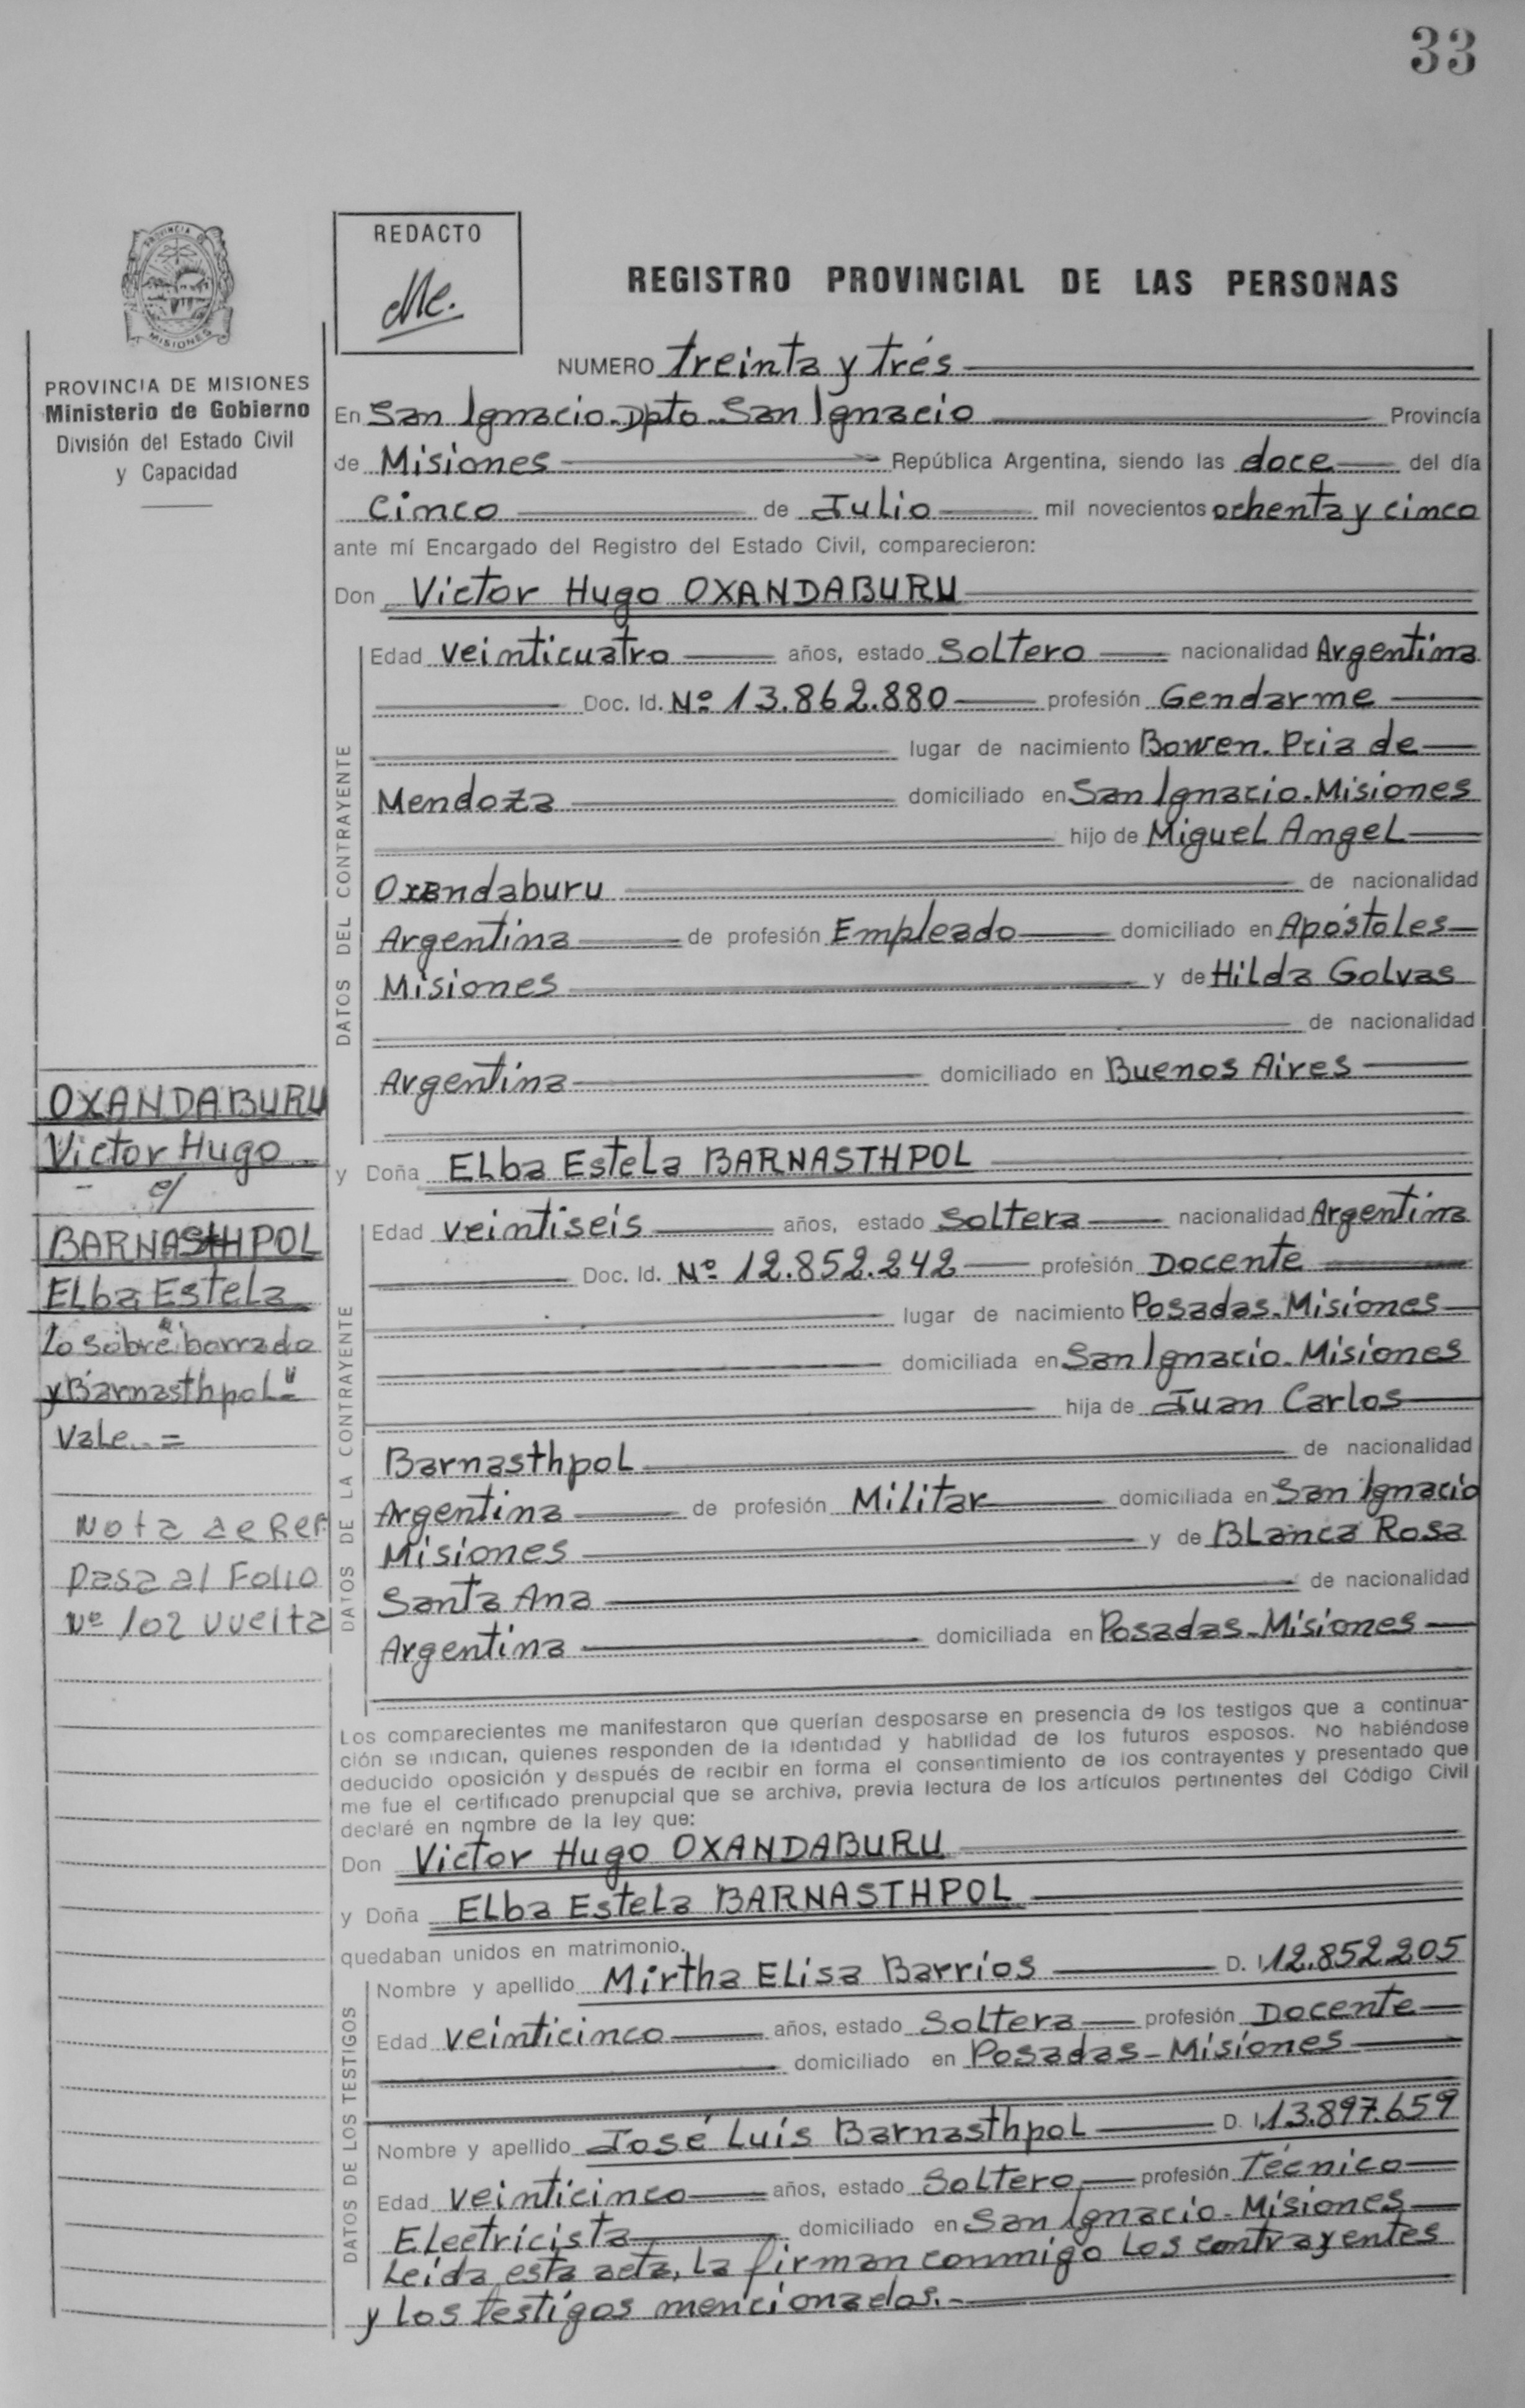 33
PROVINCIA DE
MISIONES
PROVINCIA DE MISIONES
Ministerio de Gobierno
División del Estado Civil
y Capacidad
REDACTO
REGISTRO PROVINCIAL DE LAS PERSONAS
NUMERO treinta y trés
En San Ignacio-Dpto-San Ignacio Provincia
de Misiones República Argentina, siendo las doce del día
Cinco de Julio mil novecientos ochenta y cinco
ante mí Encargado del Registro del Estado Civil, comparecieron:
Don Victor Hugo OXANDABURU
DATOS DEL CONTRAYENTE
Edad veinticuatro años, estado Soltero nacionalidad Argentina
Doc. Id. Nº 13.862.880 profesión Gendarme
lugar de nacimiento Bowen. Pcia de
Mendoza domiciliado en San Ignacio-Misiones
hijo de Miguel Angel
Oxandaburu de nacionalidad
Argentina de profesión Empleado domiciliado en Apóstoles
Misiones y de Hilda Golvas
de nacionalidad
Argentina domiciliado en Buenos Aires
y Doña Elba Estela BARNASTHPOL
DATOS DE LA CONTRAYENTE
Edad veintiseis años, estado Soltera nacionalidad Argentina
Doc. Id. Nº 12.852.242 profesión Docente
lugar de nacimiento Posadas-Misiones
domiciliada en San Ignacio-Misiones
hija de Juan Carlos
Barnasthpol de nacionalidad
Argentina de profesión Militar domiciliada en San Ignacio
Misiones y de Blanca Rosa
Santa Ana de nacionalidad
Argentina domiciliada en Posadas-Misiones
OXANDABURU
Victor Hugo
c/
BARNASTHPOL
Elba Estela
Lo sobre borrado
y "Barnasthpol"
Vale.=
Nota de Ref
Pasa al Folio
Nº 102 vuelta
Los comparecientes me manifestaron que querían desposarse en presencia de los testigos que a continua-
ción se indican, quienes responden de la identidad y habilidad de los futuros esposos. No habiéndose
deducido oposición y después de recibir en forma el consentimiento de los contrayentes y presentado que
me fue el certificado prenupcial que se archiva, previa lectura de los artículos pertinentes del Código Civil
declaré en nombre de la ley que:
Don Victor Hugo OXANDABURU
y Doña Elba Estela BARNASTHPOL
quedaban unidos en matrimonio.
DATOS DE LOS TESTIGOS
Nombre y apellido Mirtha Elisa Barrios D. I. 12.852.205
Edad veinticinco años, estado Soltera profesión Docente
domiciliado en Posadas-Misiones
Nombre y apellido José Luis Barnasthpol D. I. 13.897.659
Edad veinticinco años, estado Soltero profesión Técnico
Electricista domiciliado en San Ignacio-Misiones
Leída esta acta, la firman conmigo los contrayentes
y los testigos mencionados.-